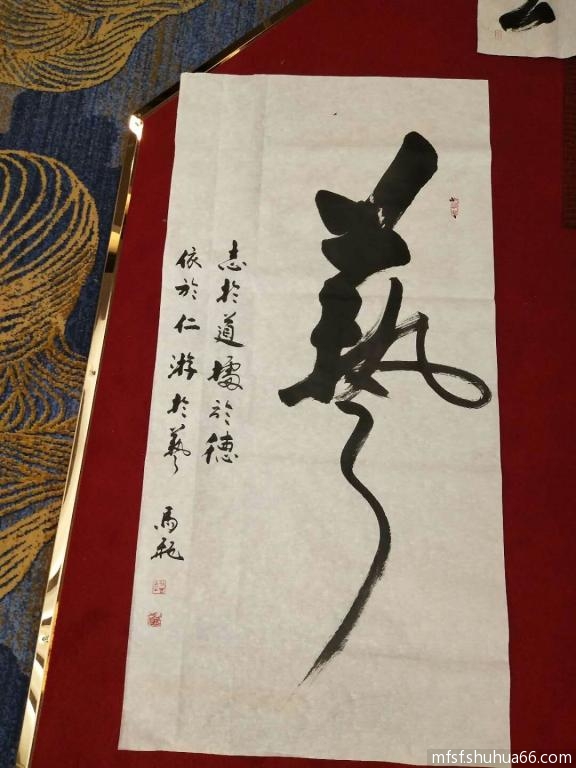 藝
志於道據於德
依於仁游於藝
馬航
mfsfshuhua66.com